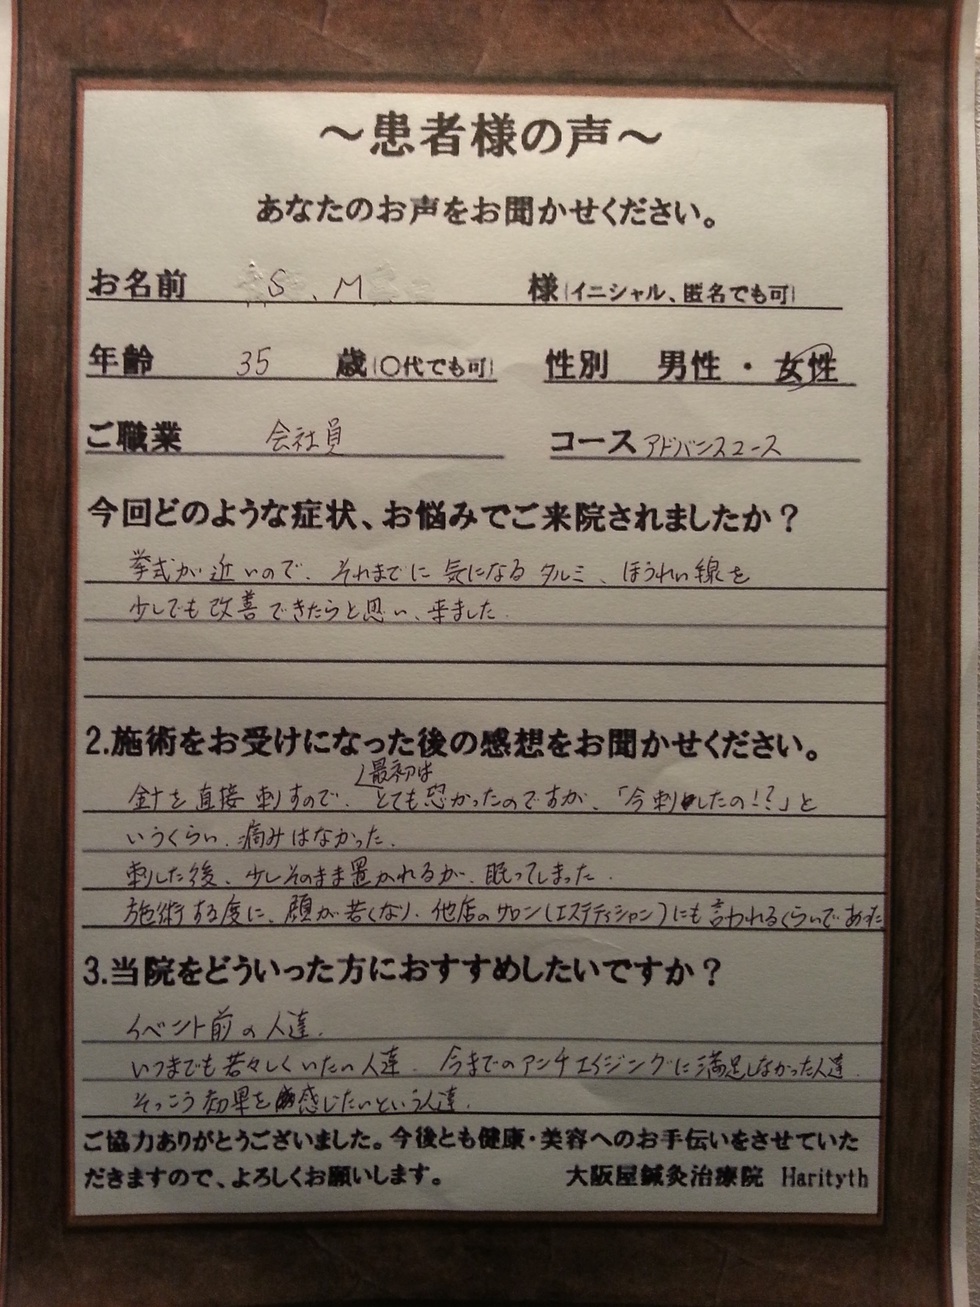 ～患者様の声～
あなたのお声をお聞かせください。
お名前 S.M 様(イニシャル、匿名でも可)
年齢 35 歳(〇代でも可) 性別 男性・女性
ご職業 会社員 コース アドバンスコース
今回どのような症状、お悩みでご来院されましたか？
挙式が近いので、それまでに気になるタルミ、ほうれい線を
少しでも改善できたらと思い、来ました。
2.施術をお受けになった後の感想をお聞かせください。
針を直接刺すので、最初はとても恐かったのですが、「今刺したの!?」と
いうくらい、痛みはなかった。
刺した後、少しそのまま置かれるが、眠ってしまった。
施術する度に、顔が若くなり、他店のサロン(エステティシャン)にも言われるくらいであった
3.当院をどういった方におすすめしたいですか？
イベント前の人達。
いつまでも若々しくいたい人達。今までのアンチエイジングに満足しなかった人達。
そっこう効果を感じたいという人達。
ご協力ありがとうございました。今後とも健康・美容へのお手伝いをさせていた
だきますので、よろしくお願いします。 大阪屋鍼灸治療院 Harityth